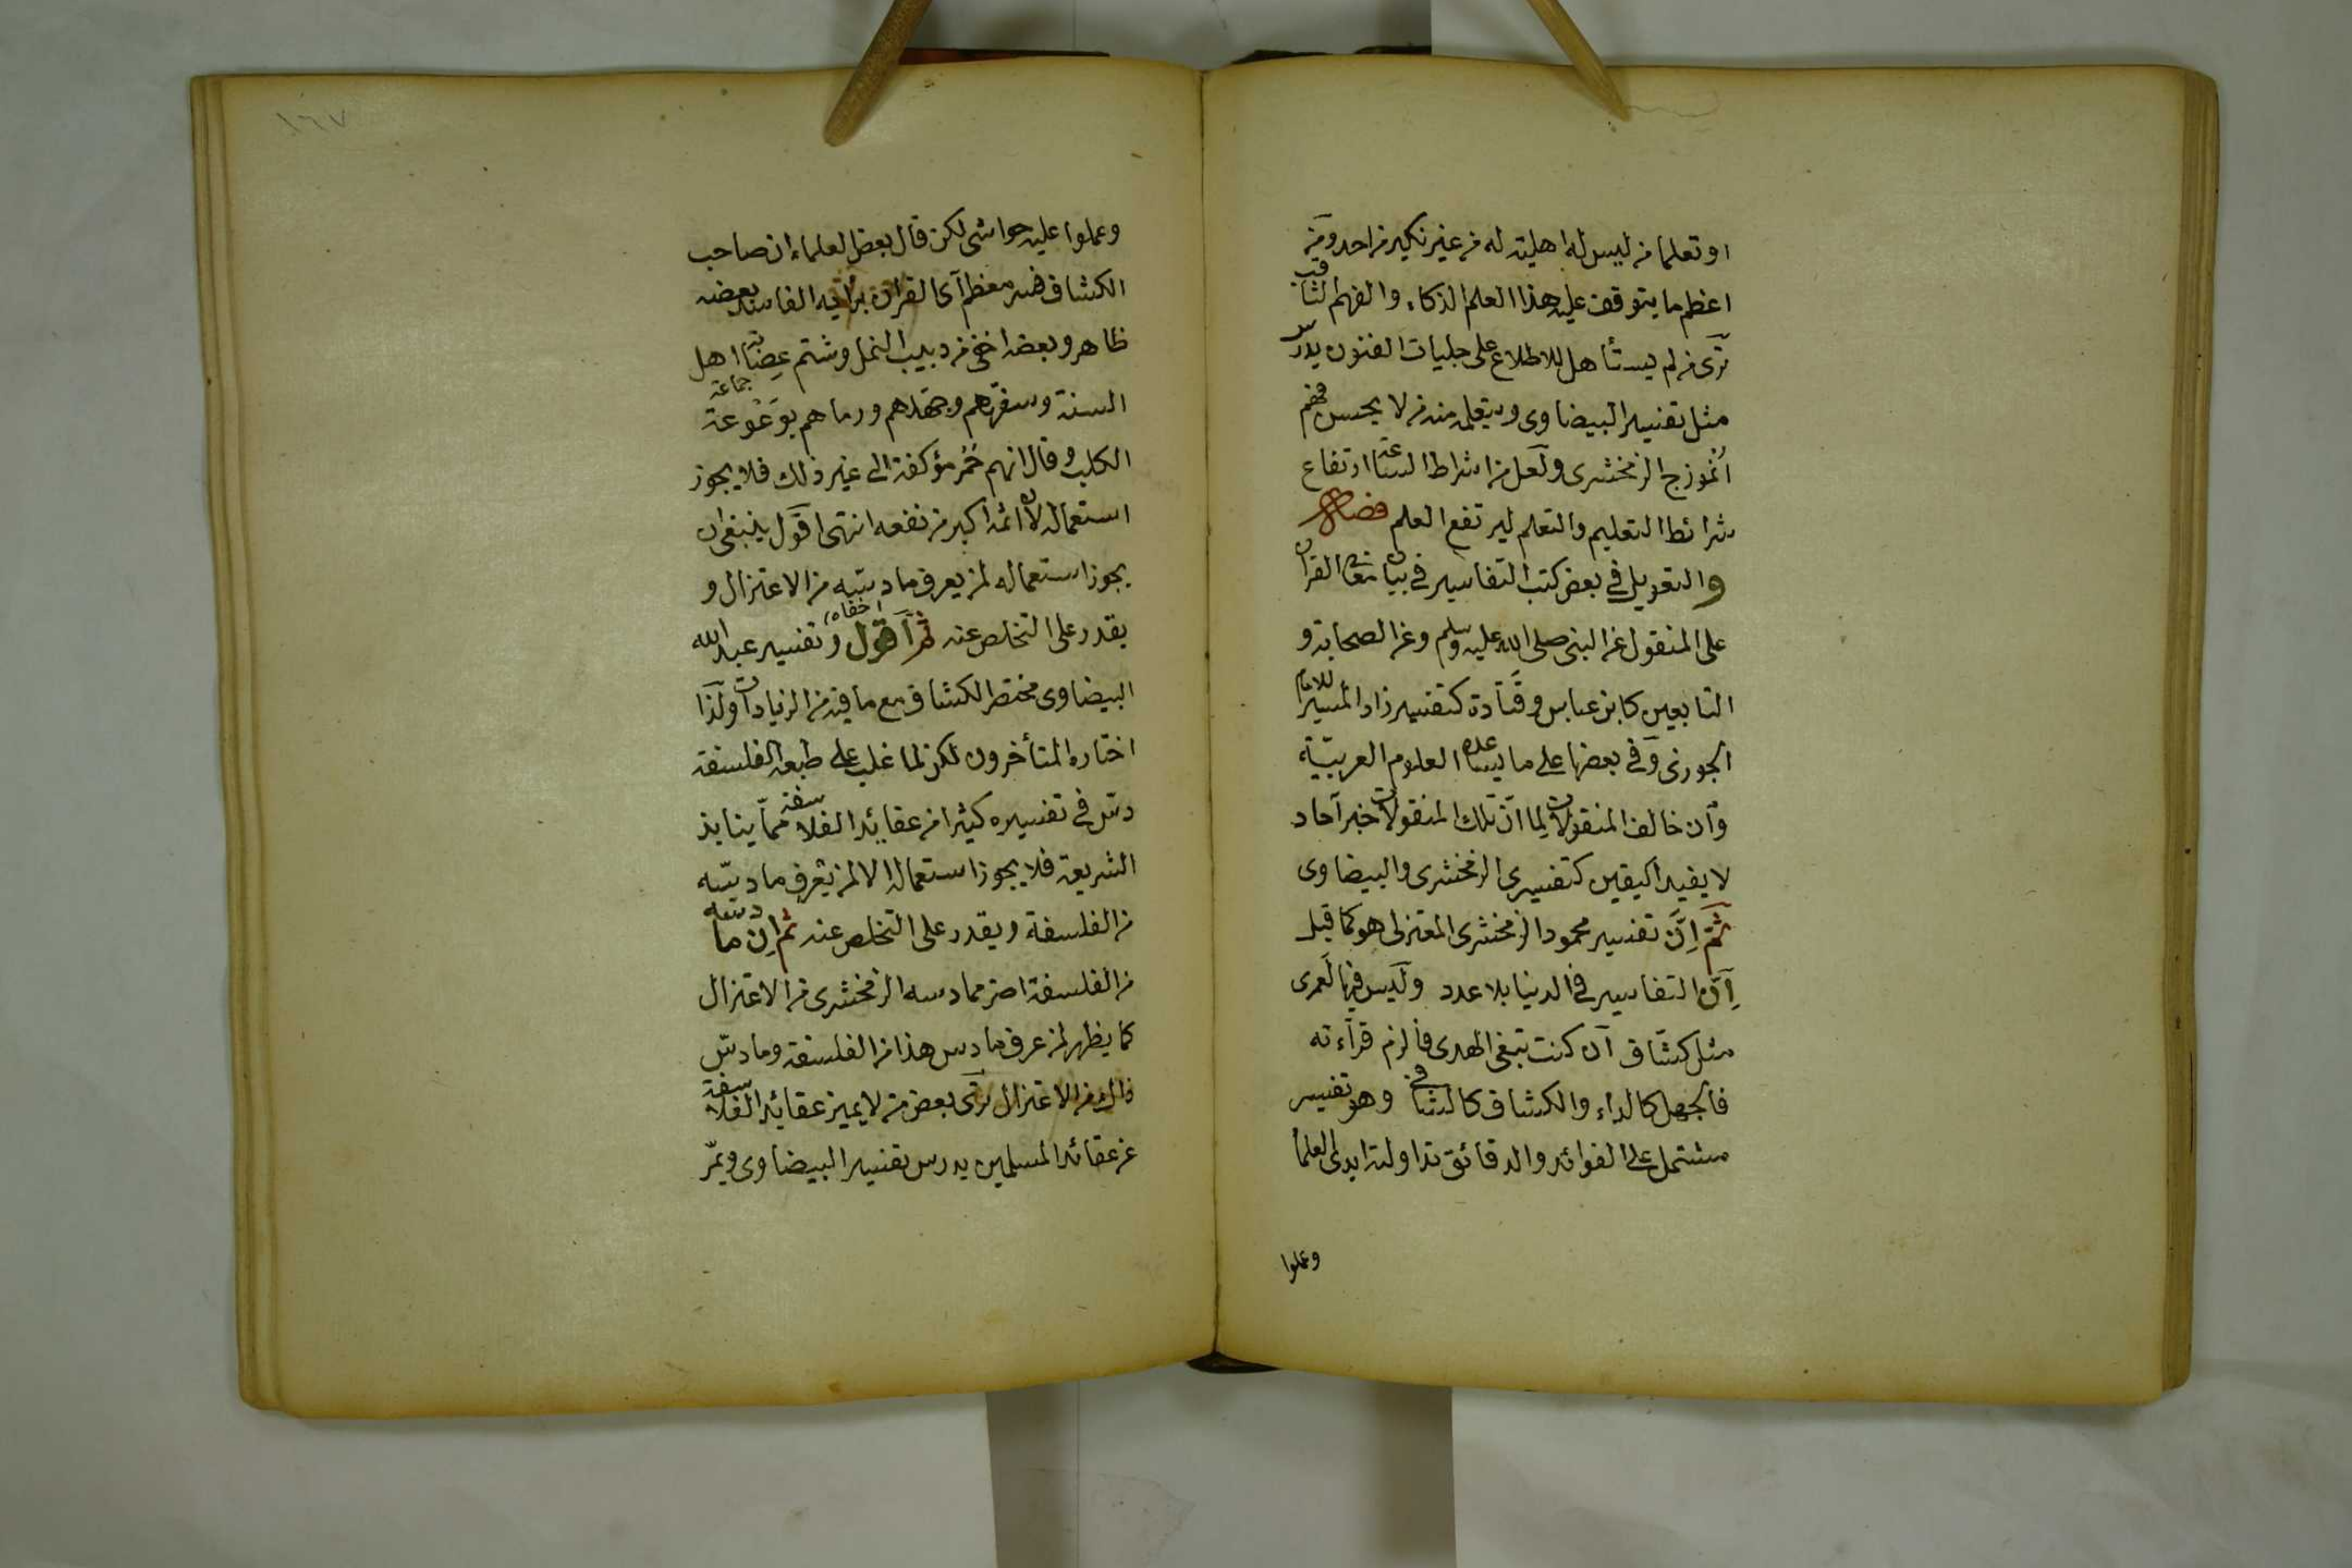 او تعلما من ليس له اهلية له من غير نكير من احد ومن
اعظم ما يتوقف عليه هذا العلم الذكاء والفهم الثاقب
ترى من لم يستأهل للاطلاع على جليات الفنون يدرس
مثل تفسير البيضاوى ويتعلمه منه من لا يحسن فهم
انموزج الزمخشرى ولعل من اشراط الساعة ارتفاع
شرائط التعليم والتعلم ليرتفع العلم فصل
والتعويل فى بعض كتب التفاسير فى بيان معان القرآن
على المنقول عن النبى صلى الله عليه وسلم وعن الصحابة و
التابعين كابن عباس وقتادة كتفسير زاد المسير للامام
الجوزى وفى بعضها على ما يساعده العلوم العربيّة
وان خالف المنقولات لِما انّ تلك المنقولات خبر آحاد
لا يفيد اليقين كتفسيرى الزمخشرى والبيضاوى
ثمّ اِنَّ تفسير محمود الزمخشرى المعتزلى هو كما قيل
اِنّ التفاسير فى الدنيا بلا عدد وليس فيها لَعمرى
مثل كشّاف ان كنت تبغى الهدى فالزم قراءته
فالجهل كالداء والكشاف كالشافى وهو تفسير
مشتمل على الفوائد والدقائق تداولته ايدى العلماء
وعملوا
١٦٧
وعملوا عليه حواشى لكن قال بعض العلماء ان صاحب
الكشاف فسر معظم آى القرآن برأيه الفاسد بعضه
ظاهر وبعضه اخفى من دبيب النمل وشتم عِصَابة اهل
السنة وسفّههم وجهّلهم ورماهم بوَعْوعة جماعة
الكلب وقال انهم حُمُر مؤكفة الى غير ذلك فلا يجوز
استعماله لان اثمه اكبر من نفعه انتهى اقول ينبغى ان
يجوز استعماله لمن يعرف ما دسّه من الاعتزال و
اخفاه
يقدر على التخلص عنه ثم اقول وتفسير عبد الله
البيضاوى مختصر الكشاف مع ما فيه من الزيادات ولذا
اختاره المتأخرون لكن لما غلب على طبعه الفلسفة
دسّ فى تفسيره كثيرا من عقائد الفلاسفة ممّا ينابذ
الشريعة فلا يجوز استعماله الا لمن يعرف ما دسّه
من الفلسفة ويقدر على التخلص عنه ثم ان ما دسّه
من الفلسفة اضر مما دسه الزمخشرى من الاعتزال
كما يظهر لمن عرف ما دس هذا من الفلسفة وما دسّ
ذلك من الاعتزال ترى بعض من لا يميز عقائد الفلاسفة
عن عقائد المسلمين يدرس تفسير البيضاوى ويمرّ